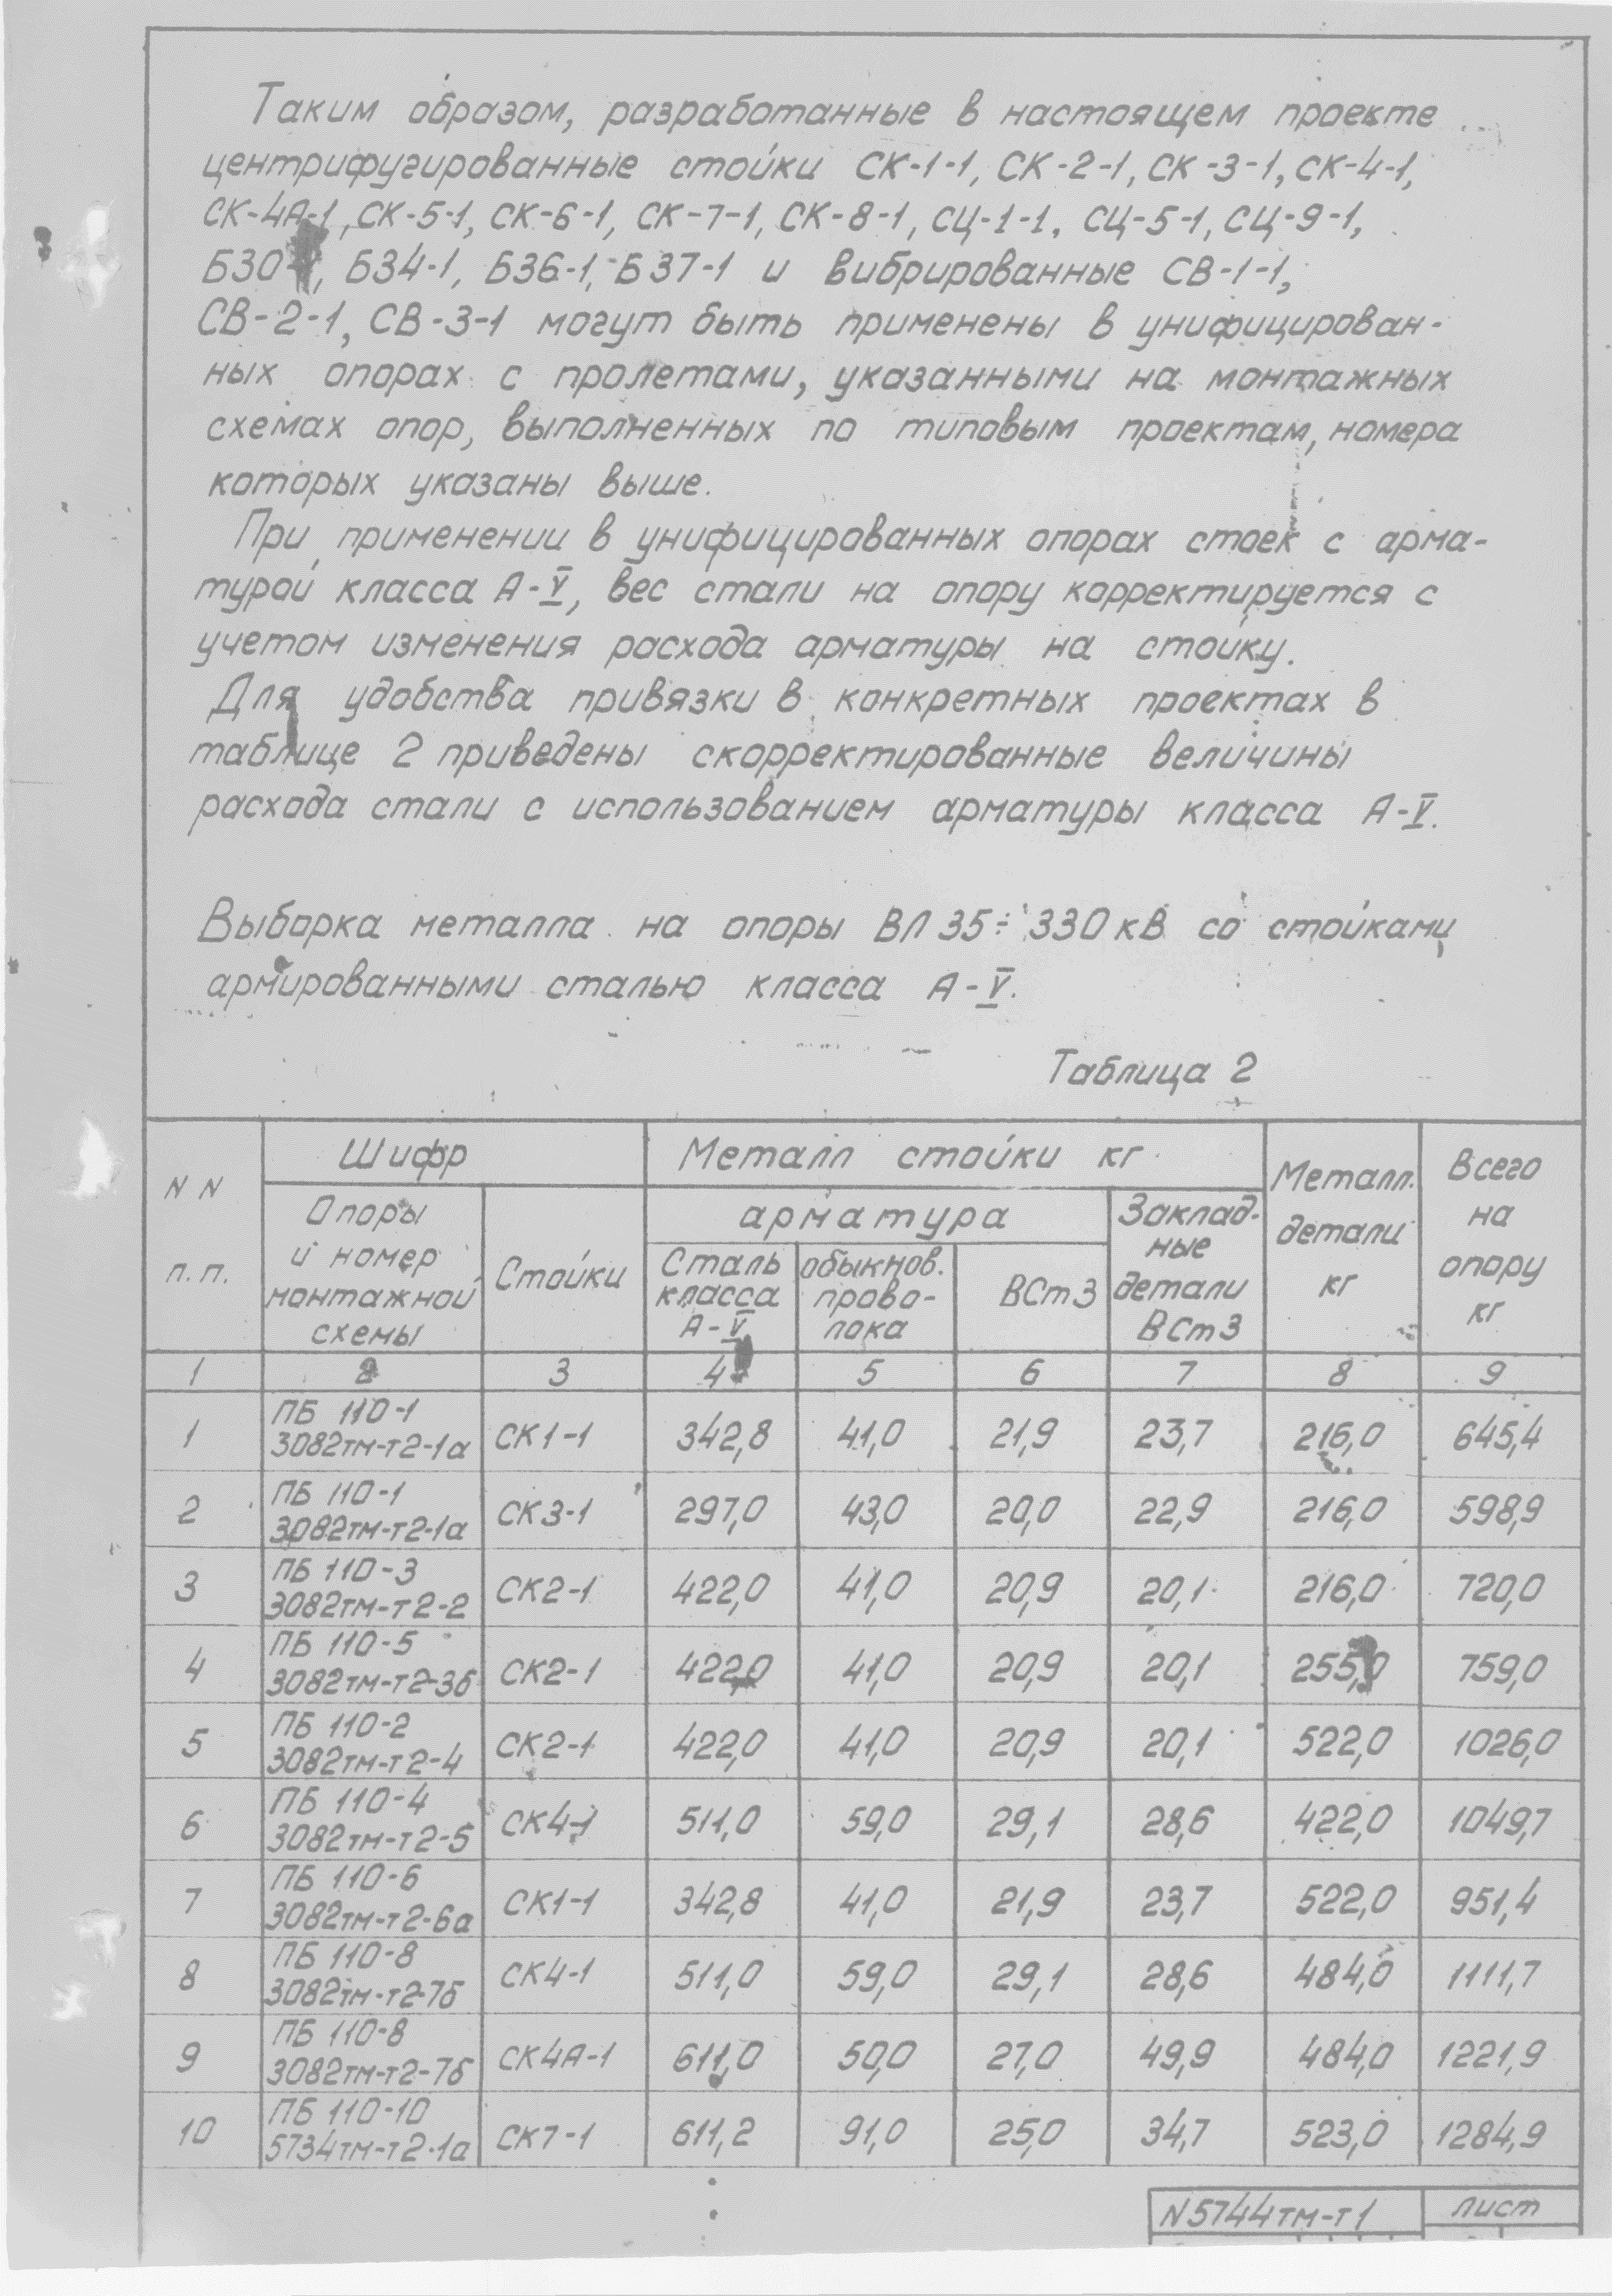 Таким образом, разработанные в настоящем проекте
центрифугированные стойки СК-1-1, СК-2-1, СК-3-1, СК-4-1,
СК-4А-1, СК-5-1, СК-6-1, СК-7-1, СК-8-1, СЦ-1-1, СЦ-5-1, СЦ-9-1,
Б34-1, Б36-1, Б37-1 и вибрированные СВ-1-1,
СВ-2-1, СВ-3-1 могут быть применены в унифицирован-
ных опорах с пролетами, указанными на монтажных
схемах опор, выполненных по типовым проектам, номера
которых указаны выше.
При применении в унифицированных опорах стоек с арма-
турой класса А-V, вес стали на опору корректируется с
учетом изменения расхода арматуры на стойку.
Для удобства привязки в конкретных проектах в
таблице 2 приведены скорректированные величины
расхода стали с использованием арматуры класса А-V.
Выборка металла на опоры ВЛ 35÷330 кВ со стойками
армированными сталью класса А-V.
Таблица 2
N N п.п. Шифр Металл стойки кг Металл. детали кг Всего на опору кг
Опоры и номер монтажной схемы Стойки арматура Заклад- ные детали ВСт3
Сталь класса А-V обыкнов. прово- лока ВСт3
1 2 3 4 5 6 7 8 9
1 ПБ 110-1 3082тм-т2-1а СК1-1 342,8 41,0 21,9 23,7 216,0 645,4
2 ПБ 110-1 3082тм-т2-1а СК3-1 297,0 43,0 20,0 22,9 216,0 598,9
3 ПБ 110-3 3082тм-т2-2 СК2-1 422,0 41,0 20,9 20,1 216,0 720,0
4 ПБ 110-5 3082тм-т2-3б СК2-1 422,0 41,0 20,9 20,1 255,0 759,0
5 ПБ 110-2 3082тм-т2-4 СК2-1 422,0 41,0 20,9 20,1 522,0 1026,0
6 ПБ 110-4 3082тм-т2-5 СК4-1 511,0 59,0 29,1 28,6 422,0 1049,7
7 ПБ 110-6 3082тм-т2-6а СК1-1 342,8 41,0 21,9 23,7 522,0 951,4
8 ПБ 110-8 3082тм-т2-7б СК4-1 511,0 59,0 29,1 28,6 484,0 1111,7
9 ПБ 110-8 3082тм-т2-7б СК4А-1 611,0 50,0 27,0 49,9 484,0 1221,9
10 ПБ 110-10 5734тм-т2-1а СК7-1 611,2 91,0 25,0 34,7 523,0 1284,9
N5744тм-т1 лист